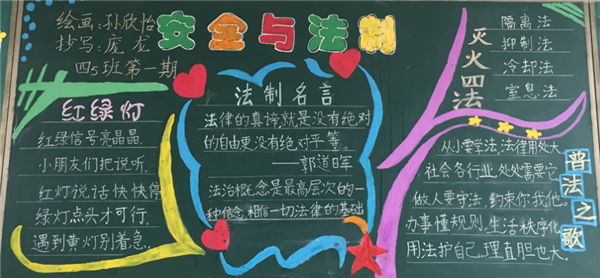 绘画:孙欣怡
抄写:庞龙
四5班第一期
安全与法制
红绿灯
红绿信号亮晶晶,
小朋友们把说听.
红灯说话快快停
绿灯点头才可行.
遇到黄灯别着急.
法制名言
法律的真谛就是没有绝对
的自由更没有绝对平等。
——郭道晖
法治概念是最高层次的一
种信念,相信一切法律的基础
灭火四法
隔离法
抑制法
冷却法
窒息法
普法之歌
从小要学法,法律用处大,
社会各行业,处处需要它
做人要守法,约束你我他.
办事懂规则,生活秩序化
用法护自己,理直胆也大。